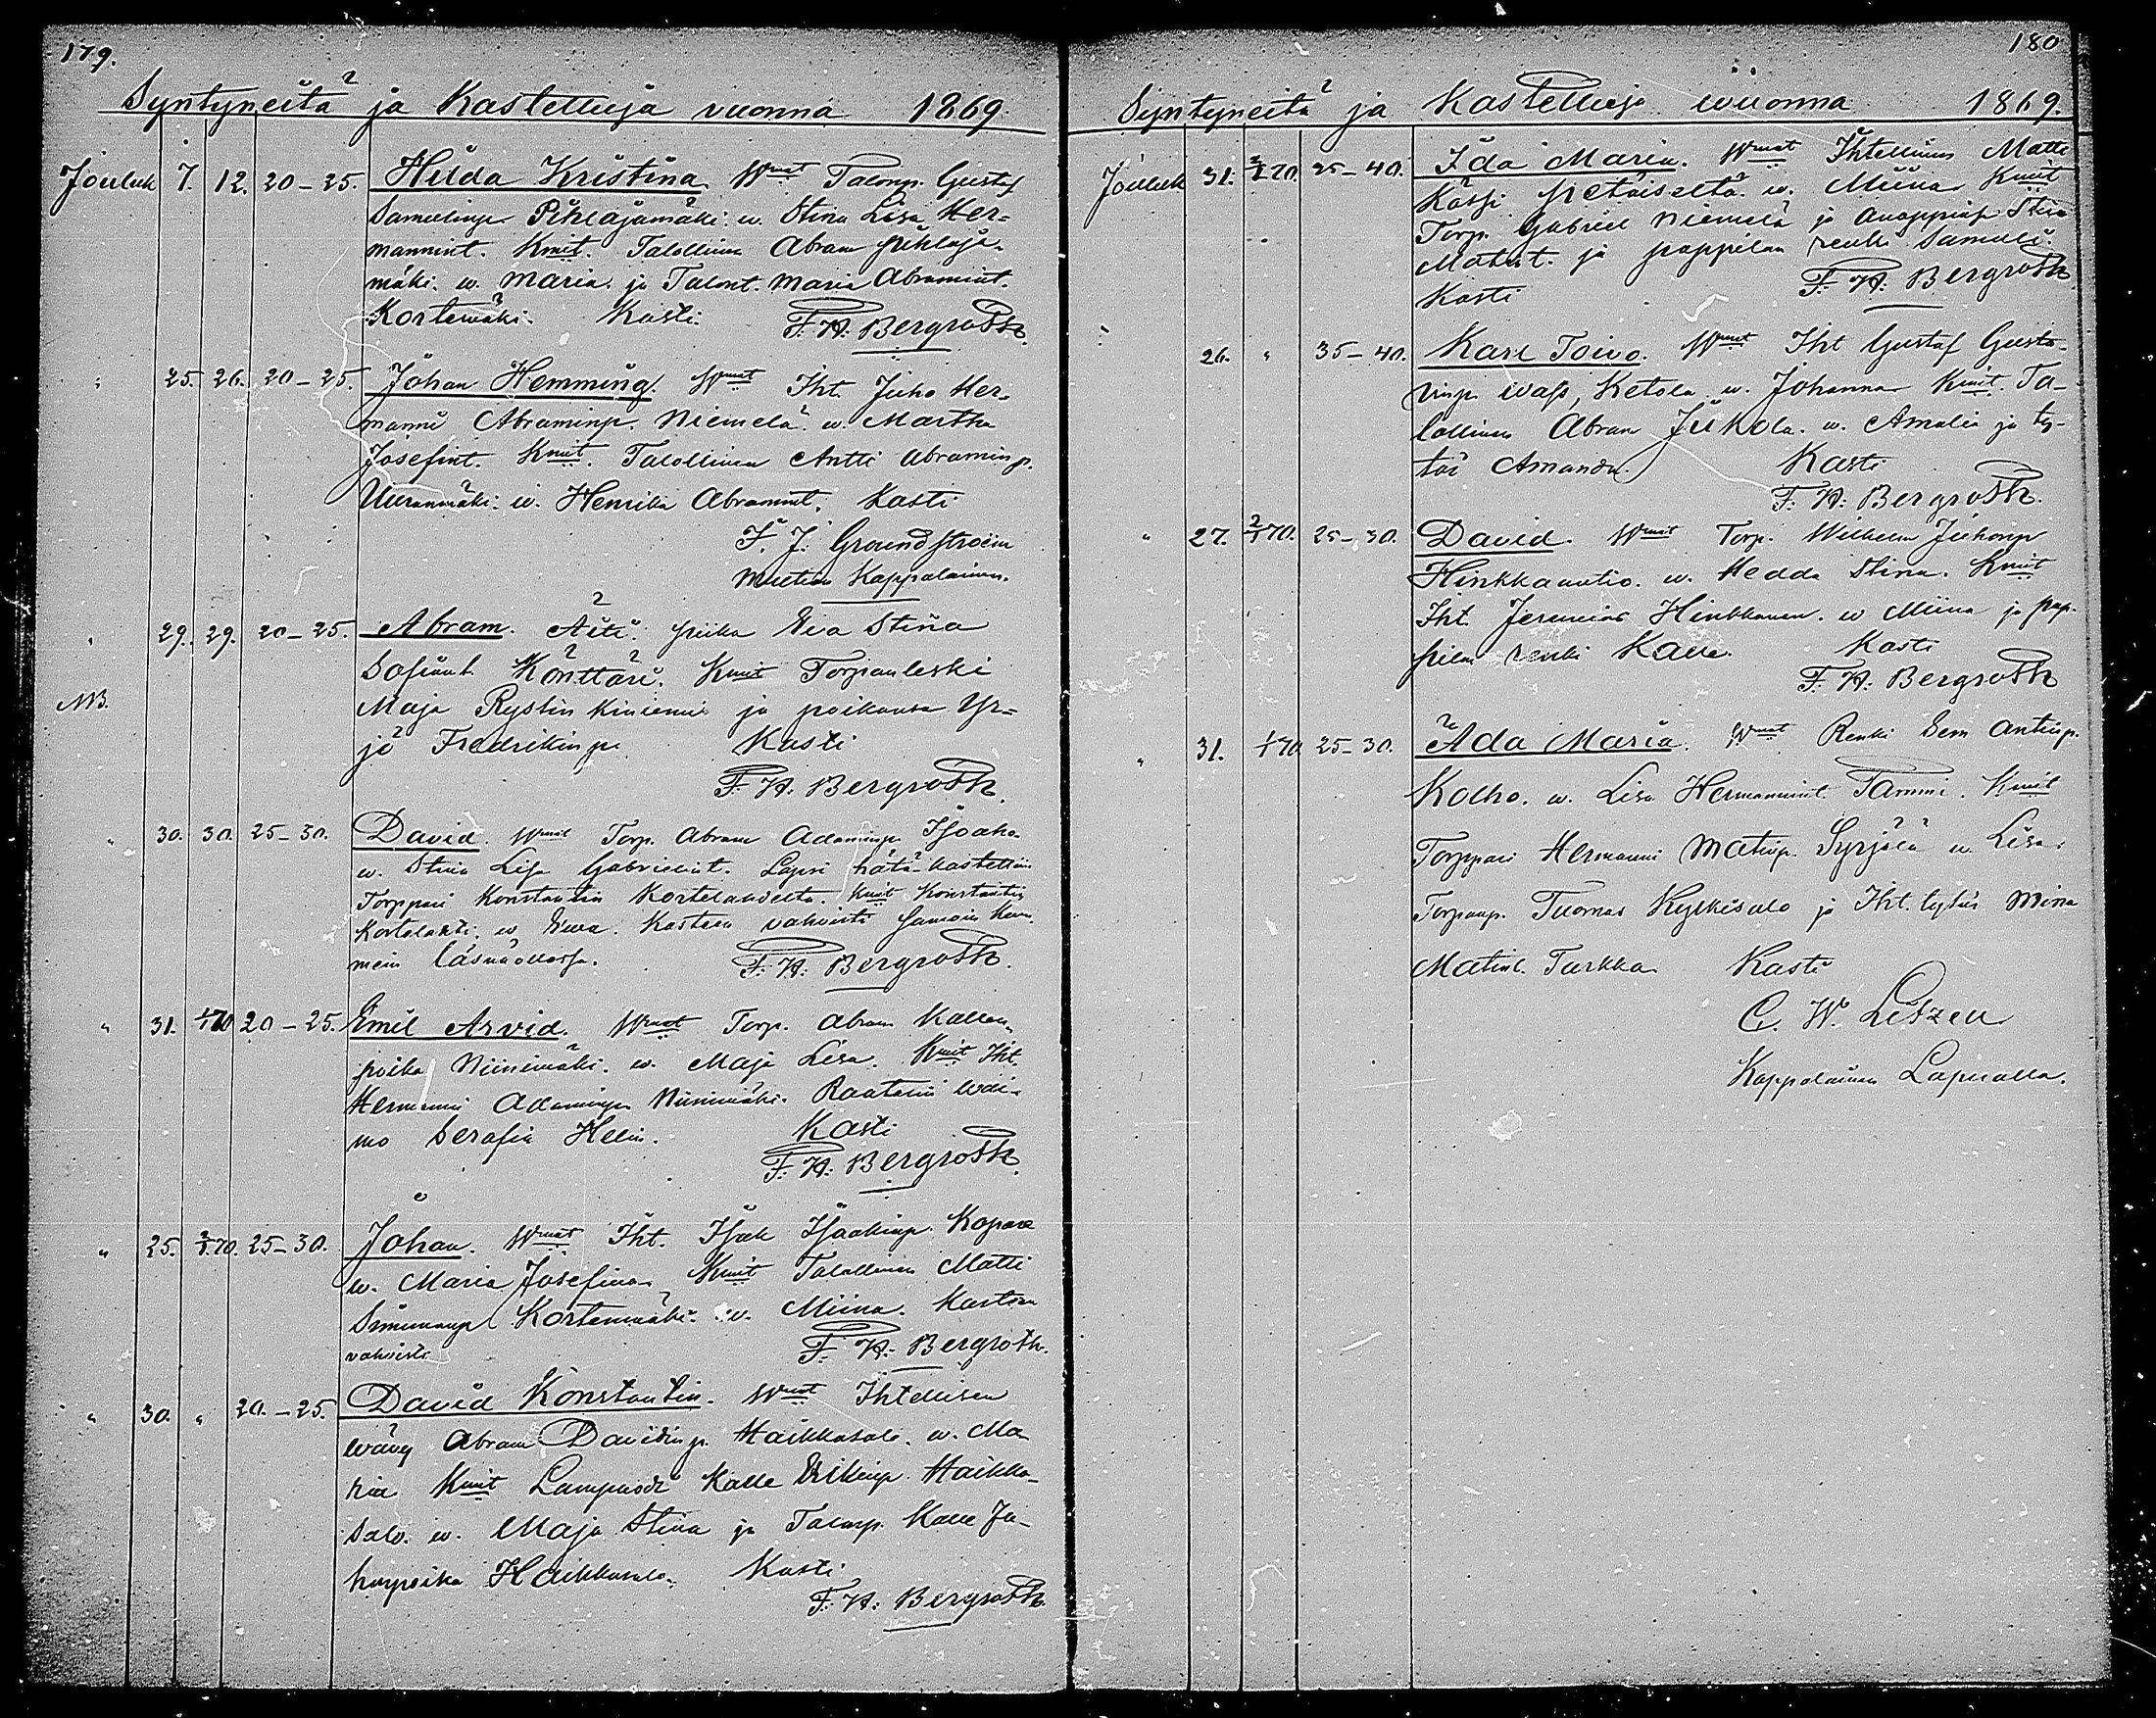 179.
Syntyneitä ja Kastettuja vuonna 1869
Jouluk 7. 12. 20-25. Hilda Kristina. Wmat Talonp. Gustaf
Samelinp. Pihlajamäki. w. Stina Lisa Her-
mannint. Kmit. Talollinen Abram Pihlaja-
mäki. w. Maria. ja Talont. Maria Abramint.
Kortemäki. Kasti
F. H. Bergroth.
" 25. 26. 20-25. Johan Hemming. Wmat Iht. Juho Her-
manni Abraminp. Niemelä. w. Martha
Josefint. Kmit. Talollinen Antti Abraminp.
Uuranmäki. w. Henrika Abramint. Kasti
F. J. Grounstroem
Kappalainen.
" 29. 29. 20-25. Abram. Äiti: piika Eva Stina
Sofiant. Könttäri. Kmit Torpanleski
NB. Maja Rystin Kiniemi ja poikansa Yr-
jö Fredrikinp. Kasti
F. H. Bergroth.
" 30. 30. 25-30. David. Wmat Torp. Abram Adaminp. Isoaho
w. Stina Lisa Gabrielint. Lapsi hätä-kastettiin
Torppari Konstantin Kortelahdelta. Kmit Konstantin
Kortelahti. w. Ewa. Kasteen vahvisti samain Kum-
mein läsnäollessa. F. H. Bergroth.
" 31. 1/1 70 20-25. Emil Arvid. Wmat Torp. Abram Kallen-
poika Niinimäki. w. Maja Lisa. Kmit Iht.
Hermanni Adaminp. Niinimäki. Raatarin wai-
mo Serafia Helin. Kasti
F. H. Bergroth.
" 25. 2/1 70. 25-30. Johan. Wmat Iht. Isak Isaakinp. Kopare
w. Maria Josefina. Kmit Talollinen Matti
Simunanp. Kortenmäki. w. Miina. Kasteen
vahvisti F. H. Bergroth.
" 30. " 20.-25. David Konstantin. Wmat Ihtellisen
wävy Abram Davidinp. Haikkasalo. w. Ma-
ria Kmit Lampuodi Kalle Erikinp. Haikka-
salo. w. Maja Stina ja Talonp. Kalle Ju-
honpoika Haikkasalo. Kasti
F. H. Bergroth.
180
Syntyneitä ja Kastettuja wuonna 1869.
Jouluk 31. 2/1 70. 25-40. Ida Maria. Wmat Ihtellinen Matti
Kässi Pietäiseltä. w. Miina Kmit
Torp. Gabriel Niemelä ja anoppinsa Stina
Matint. ja pappilan renki Samuli.
Kasti F. H. Bergroth
26. " 35-40. Karl Toivo. Wmat Iht Gustaf Gusta-
vinp. wass, Ketola w. Johanna Kmit. Ta-
lollinen Abram Jukola. w. Amalia ja ty-
tär Amanda. Kasti
F. H. Bergroth.
" 27. 2/1 70. 25-30. David. Wmat Torp. Wilhelm Juhonp
Hinkkaantio. w. Hedda Stina. Kmit
Iht. Jeremias Hinkkanen. w Miina ja pap-
pilan renki Kalle. Kasti
F. H. Bergroth
" 31. 1/1 70 25-30. Ada Maria. Wmat Renki Sem Antinp.
Kolho. w. Lisa Hermannint. Tammi. Kmit
Torppari Hermanni Matinp. Syrjälä w. Lisa.
Torpanp. Tuomas Kylkisalo ja Iht. tytär Mina
Matint. Turkka Kasti
C. W. Litzen
Kappalainen Lapualla.